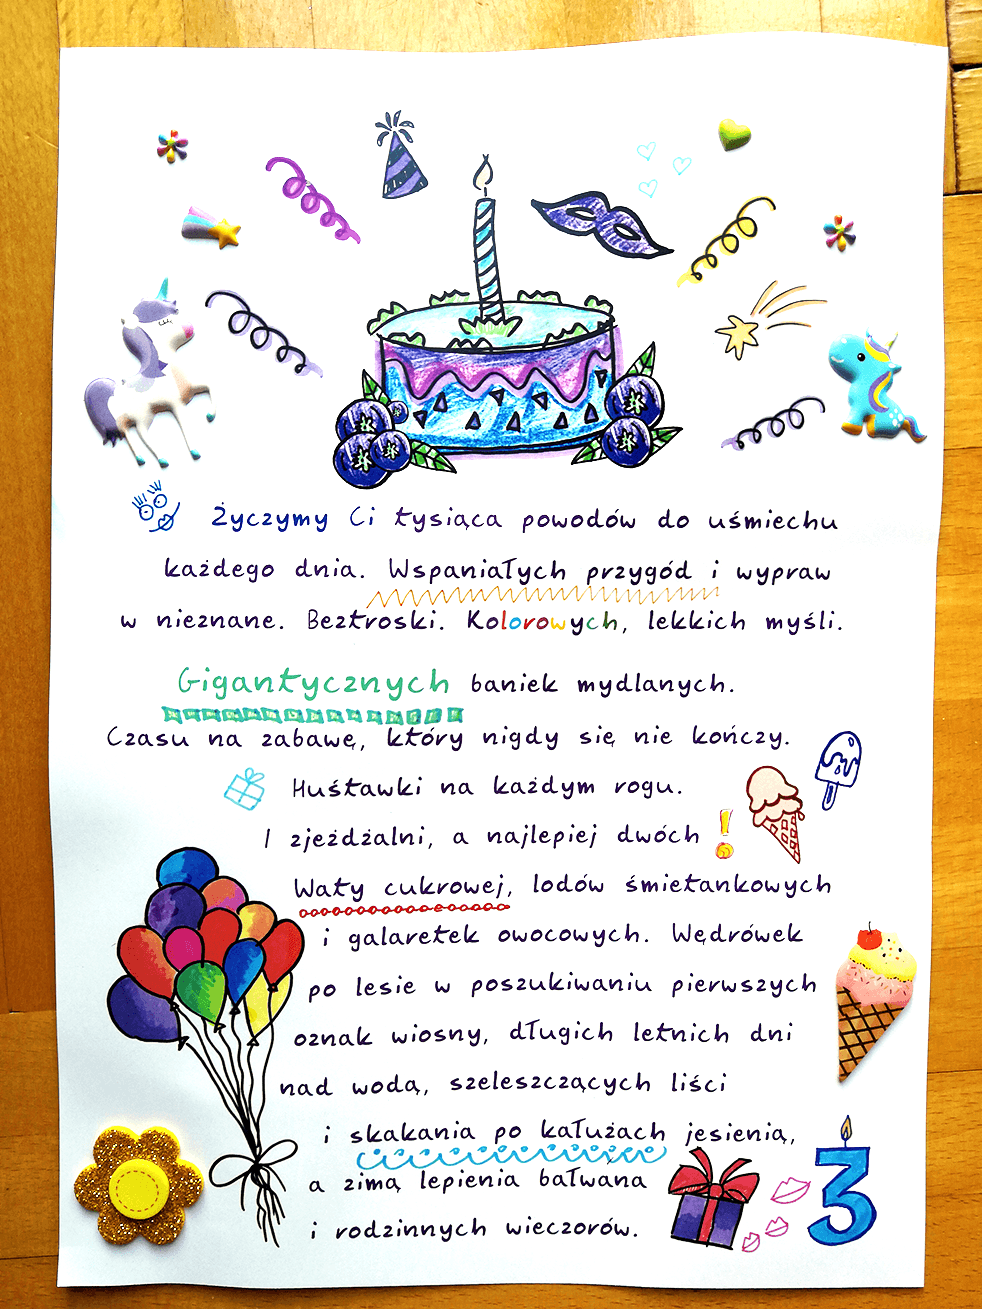 Życzymy Ci tysiąca powodów do uśmiechu
każdego dnia. Wspaniałych przygód i wypraw
w nieznane. Beztroski. Kolorowych, lekkich myśli.
Gigantycznych baniek mydlanych.
Czasu na zabawę, który nigdy się nie kończy.
Huśtawki na każdym rogu.
I zjeżdżalni, a najlepiej dwóch!
Waty cukrowej, lodów śmietankowych
i galaretek owocowych. Wędrówek
po lesie w poszukiwaniu pierwszych
oznak wiosny, długich letnich dni
nad wodą, szeleszczących liści
i skakania po kałużach jesienią,
a zimą lepienia bałwana
i rodzinnych wieczorów.
3